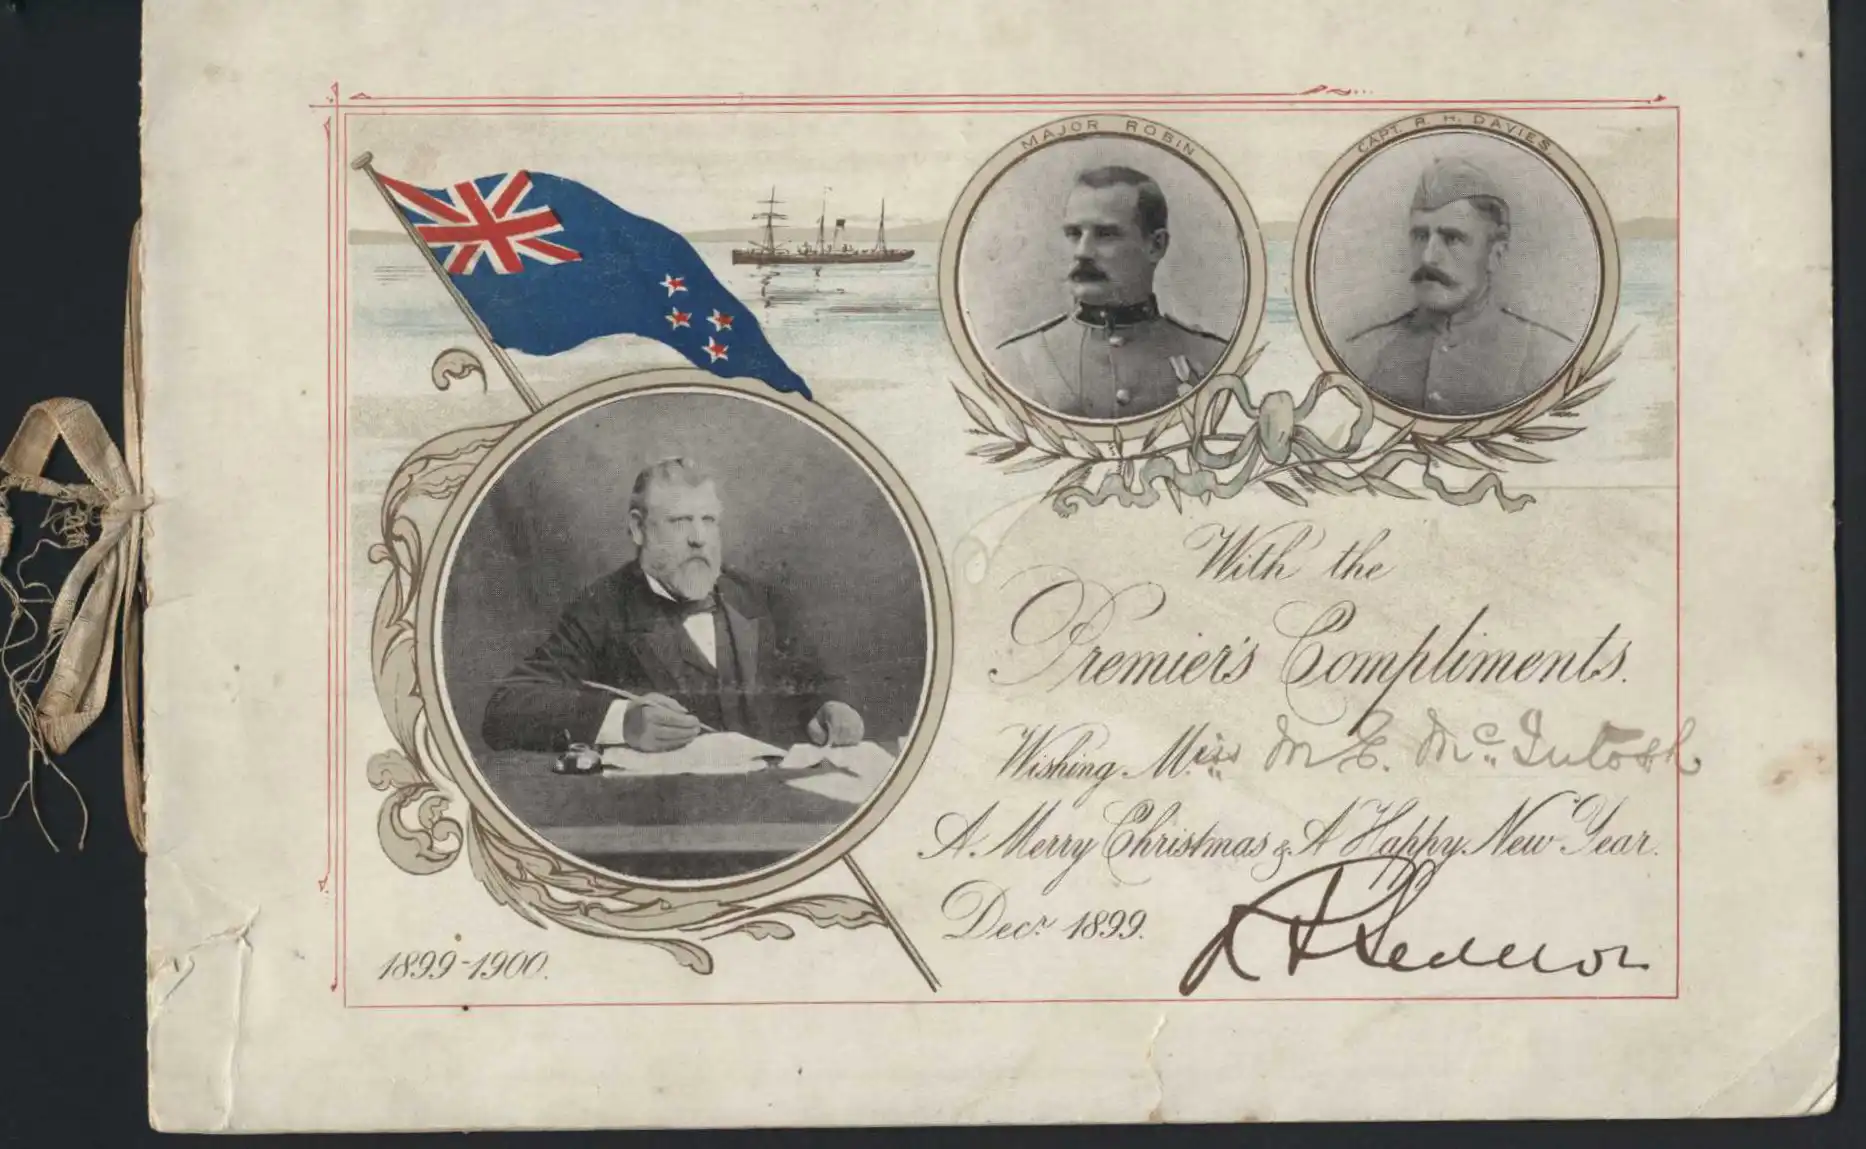 MAJOR ROBIN
CAPT. R. H. DAVIES
With the
Premier's Compliments.
Wishing Miss M. E. McIntosh
A Merry Christmas & A Happy New Year.
Decr 1899.
R J Seddon
1899-1900.